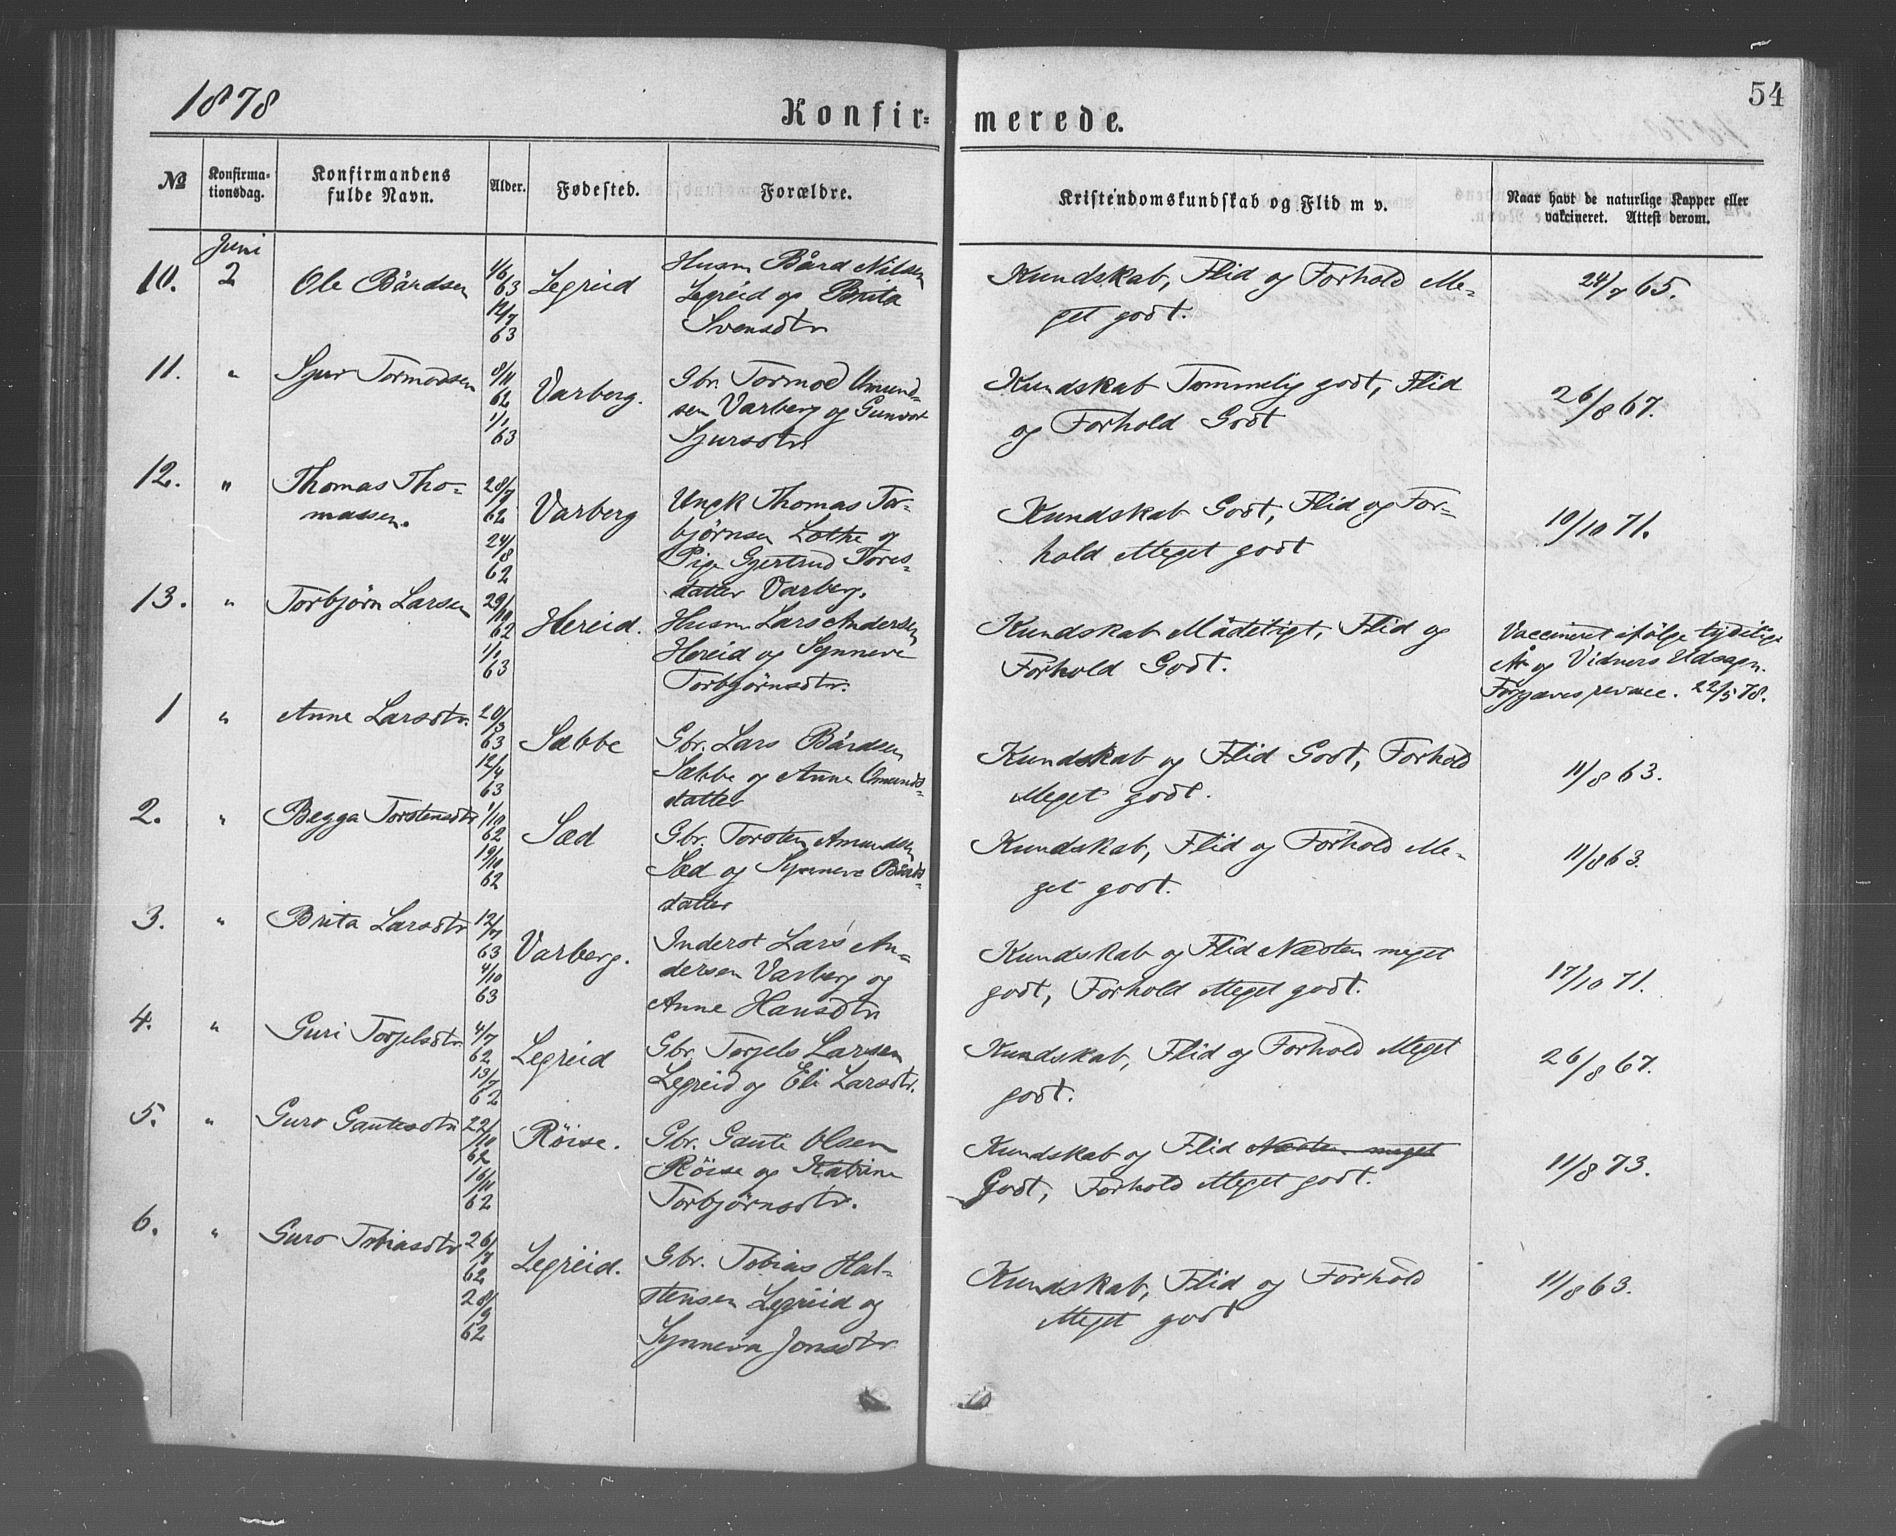 1878
54
Konfir= merede.
№ Konfirma-tionsdag. Konfirmandens fulde Navn. Alder. Fødested. Forældre. Kristendomskundskab og Flid m v. Naar havt de naturlige Kopper eller vakcineret. Attest derom.
Juni
10. 2 Ole Bårdsen 1/6 63 12/7 63 Legreid
Husm Bård Nilsen
Legreid og Brita
Svensdtr
Kundskab, Flid og Forhold Me-
get godt.
24/7 65.
11. " Sjur Tormodsen 8/11 62 1/1 63 Varberg.
Gbr. Tormod Amund-
sen Varberg og Gunvor
Sjursdtr
Kundskab Temmelig godt, Flid
og Forhold Godt
26/8 67.
12. " Thomas Tho-
massen. 28/7 62 24/8 62 Varberg
Ungk Thomas Tor-
bjørnsen Lothe og
Pige Gjertrud Tores-
datter Varberg.
Kundskab Godt, Flid og For-
hold Meget godt
19/10 71.
13. " Torbjørn Larsen 29/10 62 1/1 63 Hereid.
Husm Lars Andersen
Hereid og Synneve
Torbjørnsdtr.
Kundskab Mådeligt, Flid og
Forhold Godt.
Vaccineret ifølge tydelige
Ar og Vidners Udsagn.
Forgjæves revacc. 22/5 78.
1 " Anne Larsdtr. 20/3 63 12/4 63 Sæbbe
Gbr. Lars Bårdsen
Sæbbe og Anne Amunds-
datter
Kundskab og Flid Godt, Forhold
Meget godt.
11/8 63.
2. " Begga Torstensdtr 1/10 62 19/10 62 Sæd
Gbr. Torsten Amundsen
Sæd og Synneve Bårds-
datter
Kundskab, Flid og Forhold Me-
get godt.
11/8 63.
3. " Brita Larsdtr 12/7 63 4/10 63 Varberg.
Inderst Lars An-
dersen Varberg og
Anne Hansdtr
Kundskab og Flid Næsten meget
godt, Forhold Meget godt.
17/10 71.
4. " Guri Torjelsdtr. 4/7 62 13/7 62 Legreid
Gbr. Torjels Larsen
Legreid og Eli Larsdtr.
Kundskab, Flid og Forhold Meget
godt.
26/8 67.
5. " Guro Gautesdtr 22/10 62 16/11 62 Røise.
Gbr. Gaute Olsen
Røise og Katrine
Torbjørnsdtr.
Kundskab og Flid Næsten meget
Godt, Forhold Meget godt.
11/8 73.
6. " Guro Tobiasdtr 26/7 62 28/9 62 Legreid.
Gbr. Tobias Hal-
stensen Legreid og
Synneva Jonsdtr
Kundskab, Flid og Forhold
Meget godt
11/8 63.